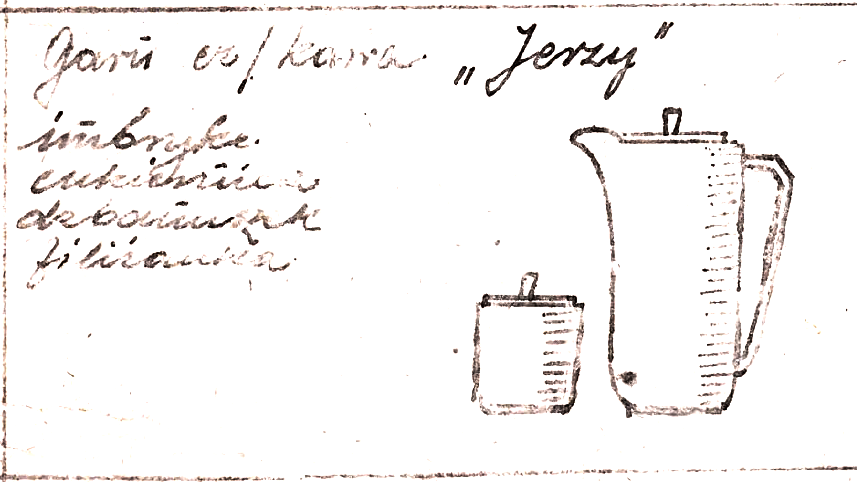 Garn cz/kawa „Jerzy"
imbryk
cukiernica
dzbanuszek
filiżanka